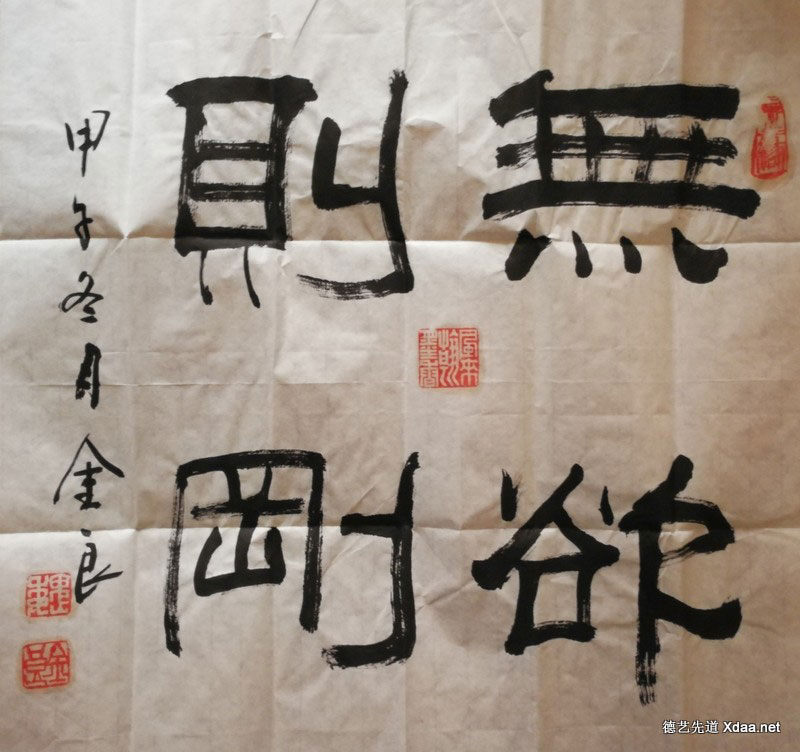 無欲
則剛
甲午冬月金良
德艺先道 Xdaa.net